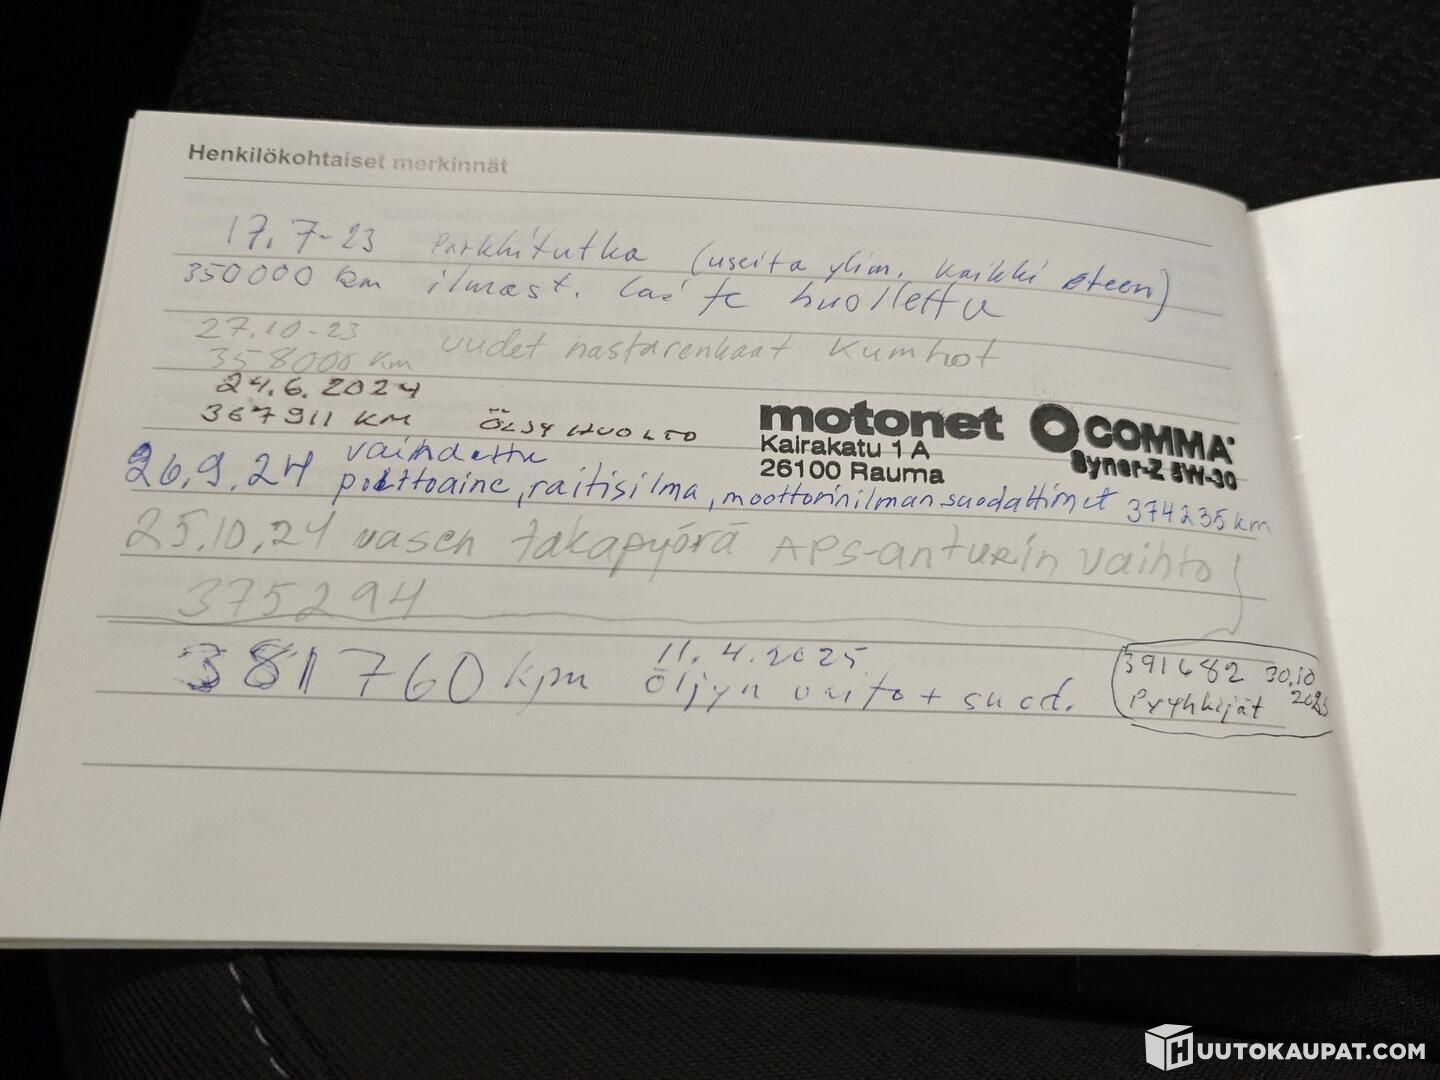 Henkilökohtaiset merkinnät
17.7-23 Parkkitutka (useita ylim. kaikki eteen)
350000 km ilmast. laite huollettu
27.10-23 uudet nastarenkaat Kumhot
358000 km
24.6.2024
367911 KM ÖLJY HUOLTO
motonet
Kairakatu 1 A
26100 Rauma
COMMA
Syner-Z 5W-30
26.9.24 vaihdettu
polttoaine, raitisilma, moottorinilmansuodattimet 374235 km
25.10.24 vasen takapyörä APS-anturin vaihto
375294
381760 kpm 11.4.2025
öljyn vaito + suod.
391682 30.10
Pyyhkijät 2025
HUUTOKAUPAT.COM